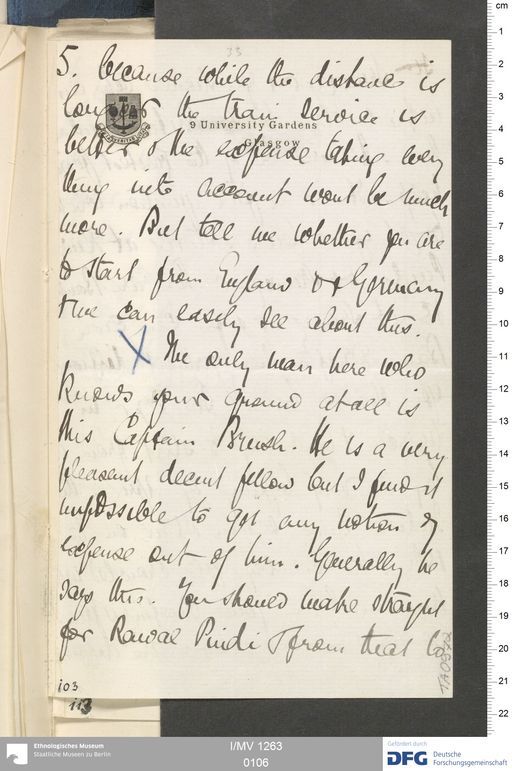 33
5. because while the distance is
longer the train service is
9 University Gardens
Glasgow
better & the expense taking every
thing into account wont be much
more. But tell me whether you are
to start from England or Germany
& we can easily see about this.
X The only man here who
knows your ground at all is
this Captain Brush. He is a very
pleasant decent fellow but I find it
impossible to get any notion of
expense out of him. Generally he
says this. You should make straight
for Rawal Pindi & from that to
103
113
TA0542
cm
1
2
3
4
5
6
7
8
9
10
11
12
13
14
15
16
17
18
19
20
21
22
Ethnologisches Museum
Staatliche Museen zu Berlin
I/MV 1263
0106
Gefördert durch
DFG Deutsche
Forschungsgemeinschaft